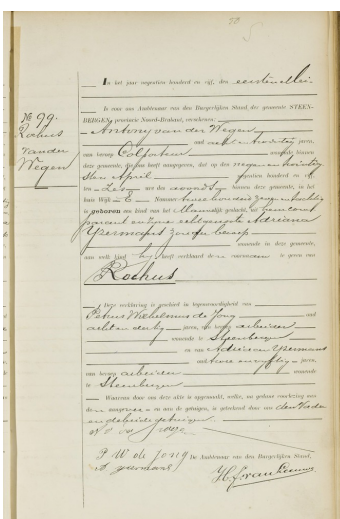 No 99.
Rochus
van der
Wegen
In het jaar negentien honderd en vijf, den eersten Mei
is voor ons Ambtenaar van den Burgerlijken Stand der gemeente STEEN-
BERGEN, provincie Noord-Brabant, verschenen:
Antony van der Wegen
oud acht en twintig jaren,
van beroep wonende binnen
deze gemeente, die ons heeft aangegeven, dat op den negen en twintig
sten April negentien honderd en vijf
ten zes ure des avonds binnen deze gemeente, in het
huis Wijk E Nummer twee honderd zeven en tachtig
is geboren een kind van het Mannelijk geslacht, uit hem
en zijne echtgenoote Adriana
Ypermans zonder beroep
wonende in deze gemeente,
aan welk kind hij heeft verklaard de voornaam te geven van
Rochus
Deze verklaring is geschied in tegenwoordigheid van
Petrus Wilhelmus de Jong oud
acht en dertig jaren, van beroep arbeider
wonende te Steenbergen
en van Adriaan Ypermans
oud twee en vijftig jaren,
van beroep arbeider wonende
te Steenbergen
Waarvan door ons deze akte is opgemaakt, welke, na gedane voorlezing aan
de aangever en aan de getuigen, is geteekend door ons, den Vader
en de beide getuigen.
P W de Jong
De Ambtenaar van den Burgerlijken Stand,
A ypermans